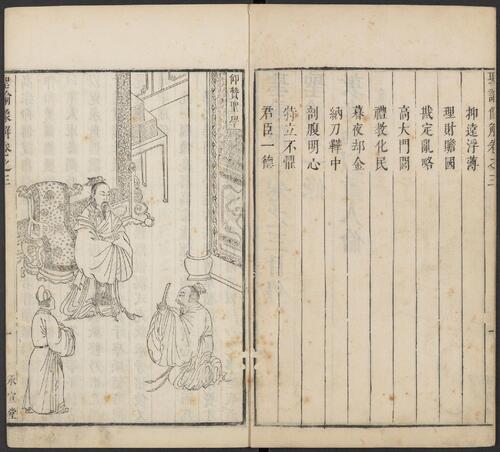 聖諭像解卷之三
抑遠浮薄
理財贍國
戡定亂略
高大門閭
禮教化民
暮夜却金
納刀鞾中
剖腹明心
特立不懼
君臣一德
一
仰贊聖學
聖諭像解卷之三
一
承宣堂